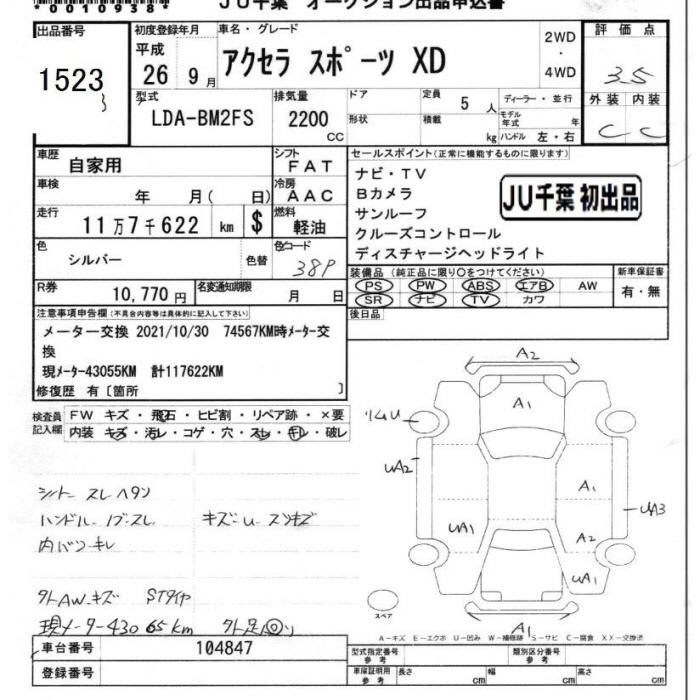 *0010938*
JU千葉 オークション出品申込書
出品番号
1523
初度登録年月
平成
26 9月
車名・グレード
アクセラ スポーツ XD
2WD
・
4WD
評価点
3.5
外装 内装
C C
型式
LDA-BM2FS
排気量
2200
CC
ドア
形状
定員
5人
積載
kg
ディーラー・並行
モデル年式 年
ハンドル 左・右
車歴
自家用
シフト
FAT
車検
年 月( 日)
冷房
AAC
走行
11万7千622 km $
燃料
軽油
色
シルバー
色替
色コード
38P
R券
10,770円
名変通知期限
月 日
セールスポイント(正常に機能するものに限ります)
ナビ・TV
Bカメラ
サンルーフ
クルーズコントロール
ディスチャージヘッドライト
JU千葉 初出品
装備品(純正品に限り○をつけてください)
PS PW ABS エアB AW
SR ナビ TV カワ
新車保証書
有・無
後日品
注意事項申告欄(不具合内容等は具体的に記入して下さい)
メーター交換 2021/10/30 74567KM時メーター交
換
現メーター43055KM 計117622KM
修復歴 有〔箇所 〕
検査員
記入欄
FW キズ・飛石・ヒビ割・リペア跡・×要
内装 キズ・汚レ・コゲ・穴・スレ・キレ・破レ
シート スレ ヘタリ
ハンドル ノブ スレ
キズ U スリキズ
内バリ キレ
外AW キズ STタイヤ
現メーター43065km
A2
A1
リムU
UA2
A1
UA3
UA1
A2
UA1
A1
スペア
A-キズ E-エクボ U-凹み W-補修跡 S-サビ C-腐食 XX-交換済
車台番号
104847
登録番号
型式指定番号
参考
類別区分番号
参考
車庫証明用
参考
長さ cm
幅 cm
高さ cm